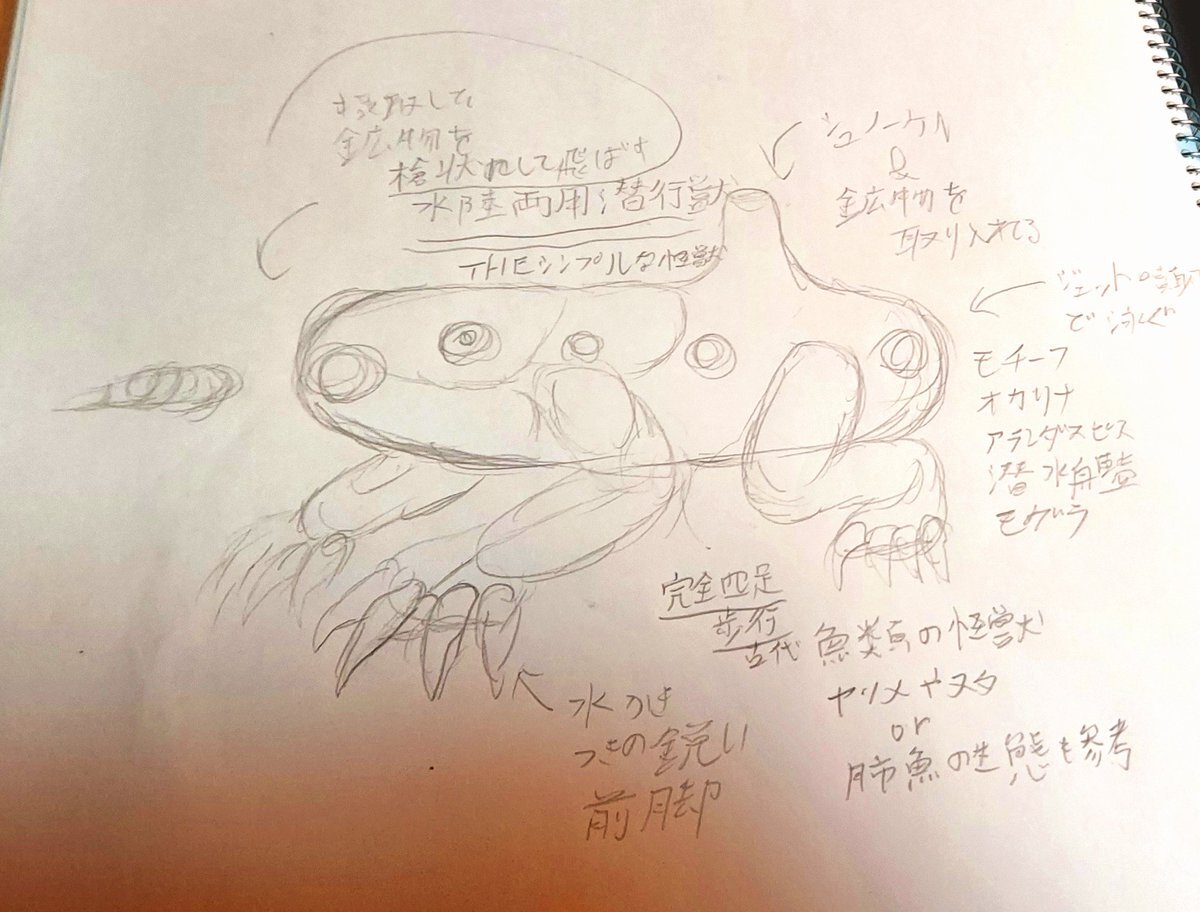 採取して
鉱物を
槍状にして飛ばす
水陸両用潜行獣
THEシンプルな怪獣
シュノーケル
&
鉱物を
取り入れる
ジェット噴射
で泳ぐ
モチーフ
オカリナ
アランダスピス
潜水舟
モグラ
完全四足
歩行
古代魚類の怪獣
ヤツメやヌタ
or
肺魚の生態も参考
水かき
つきの鋭い
前脚